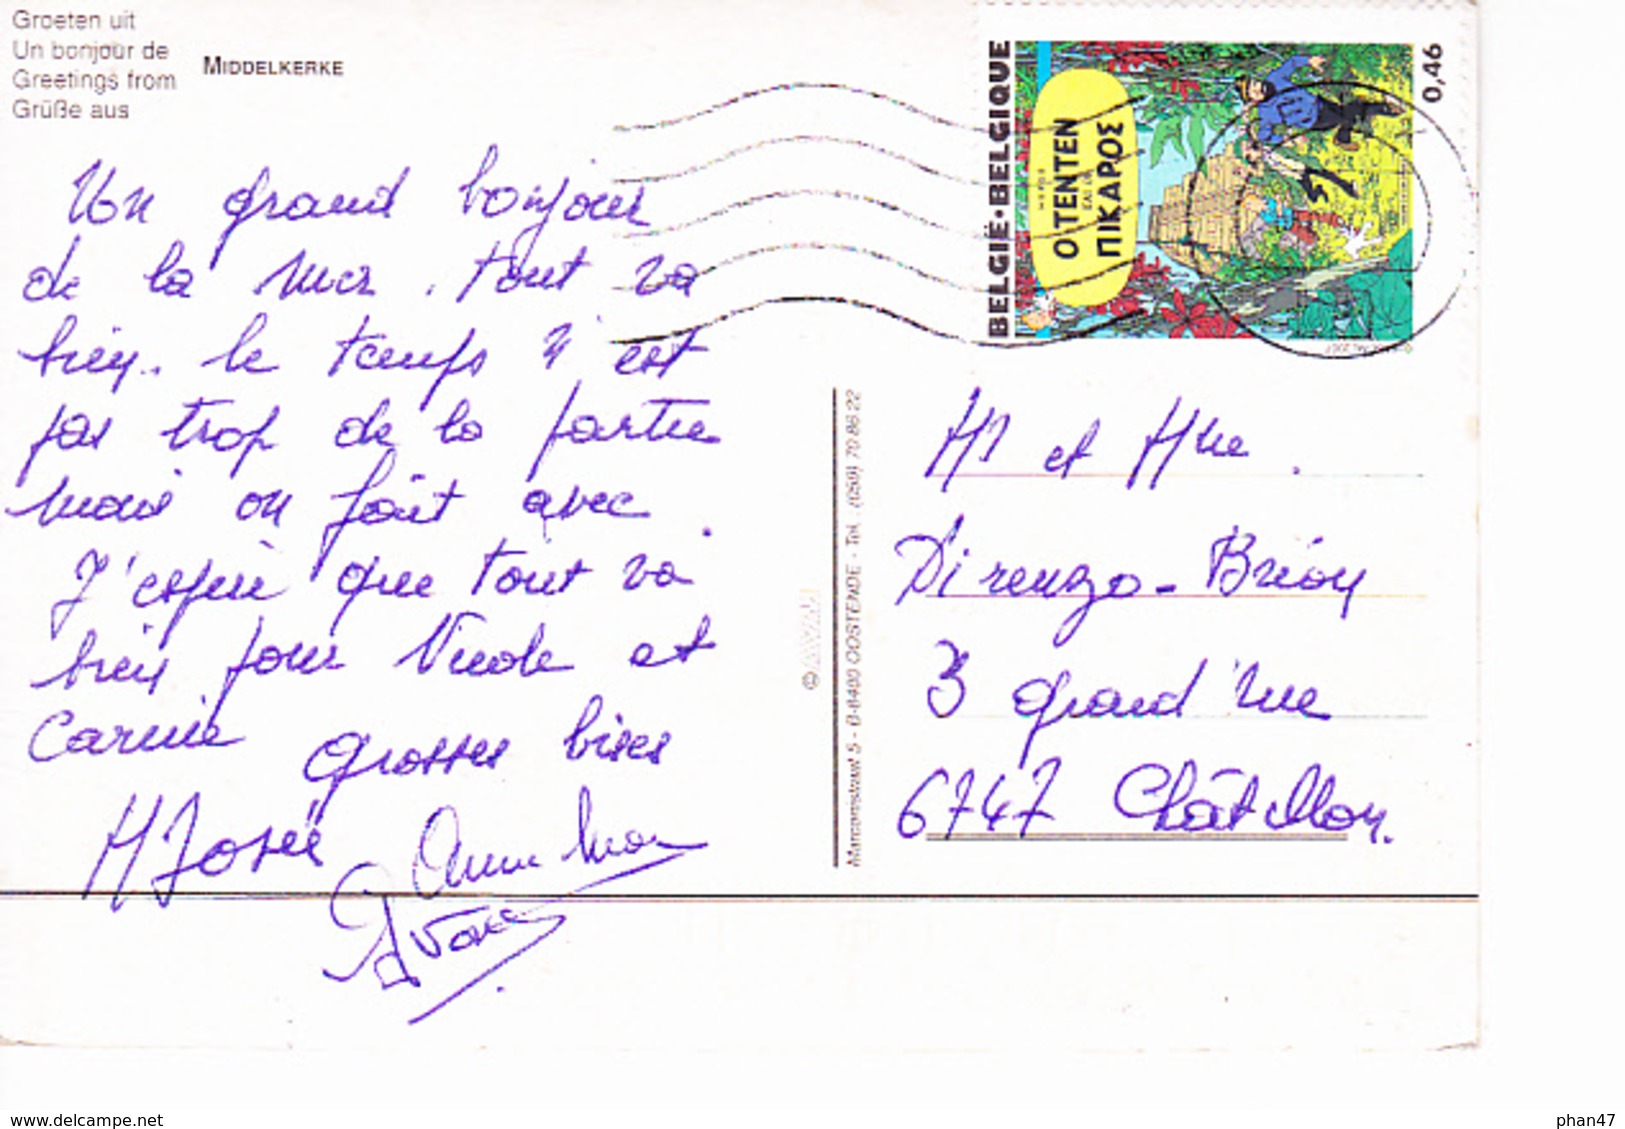 Groeten uit
Un bonjour de
Greetings from
Grüße aus
MIDDELKERKE
Un grand bonjour
de la mer. tout va
bien.. le temps n'est
pas trop de la partie
mais on fait avec.
J'espère que tout va
bien pour Nicole et
Carmie
grosses bises
M José
Anne Mar
BELGIË·BELGIQUE
0,46
Ο ΤΕΝΤΕΝ
ΚΑΙ ΟΙ
ΠΙΚΑΡΟΣ
Marconistraat 5 - B-8400 OOSTENDE - Tel. (059) 70 86 22
Mr et Mme
Direnzo-Brion
3 grand'rue
6747 Châtillon.
www.delcampe.net
phan47